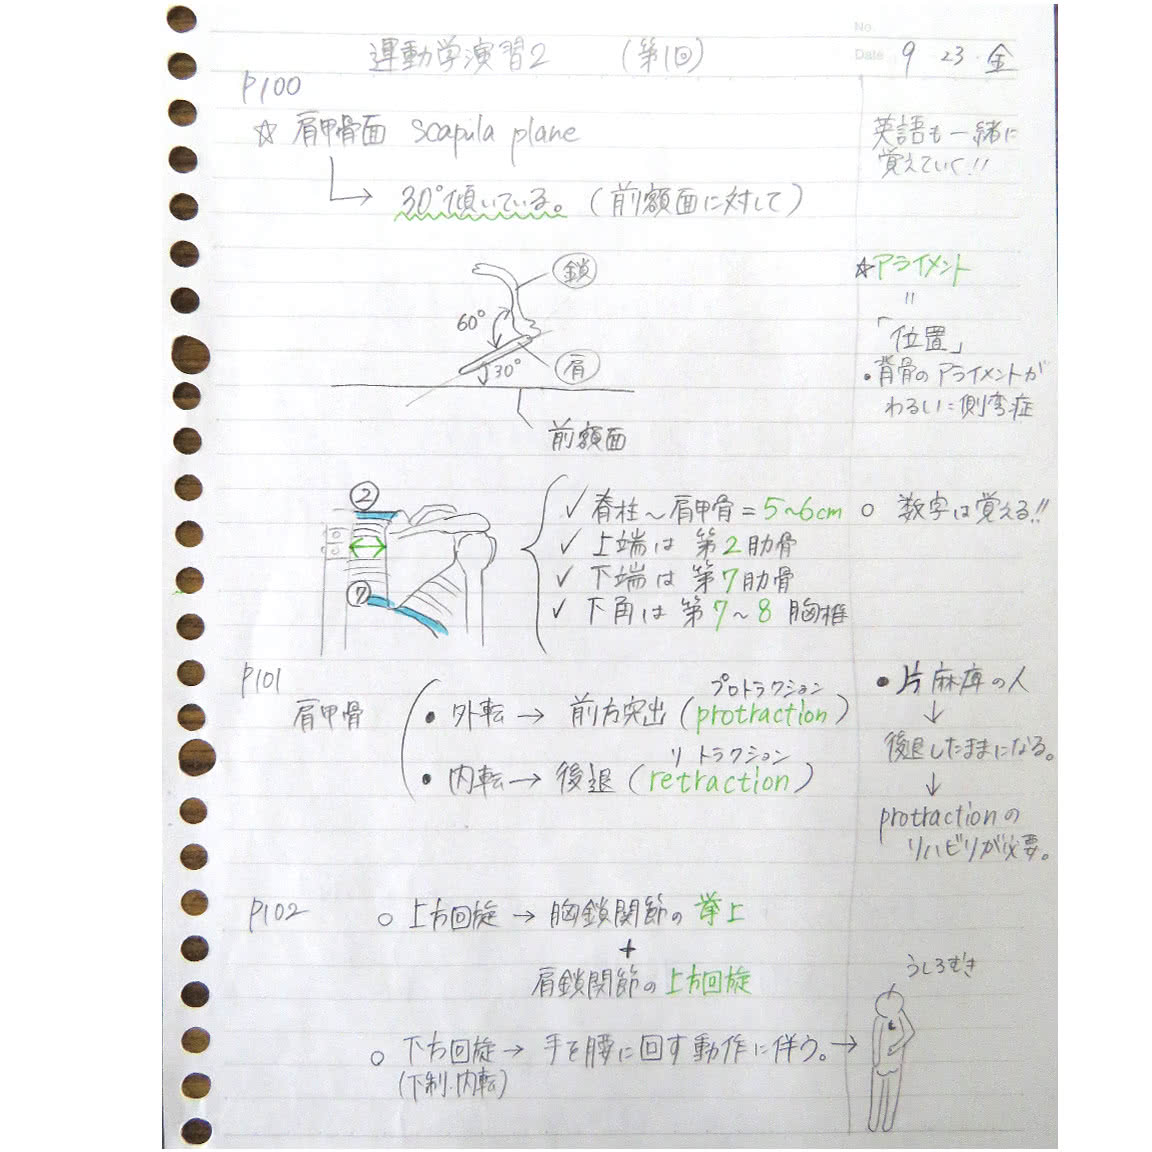 No.
Date 9 23 金
運動学演習2 (第1回)
P100
☆ 肩甲骨面 scapula plane
英語も一緒に
覚えていく!!
→ 30°傾いている。(前額面に対して)
鎖
60°
30°
肩
前額面
☆アライメント
〃
「位置」
・背骨のアライメントが
わるい=側弯症
②
⑦
✓ 脊柱〜肩甲骨=5~6cm ○ 数字は覚える!!
✓ 上端は 第2肋骨
✓ 下端は 第7肋骨
✓ 下角は 第7~8 胸椎
P101
肩甲骨
プロトラクション
・外転 → 前方突出 (protraction)
リトラクション
・内転 → 後退 (retraction)
・片麻痺の人
↓
後退したままになる。
↓
protractionの
リハビリが必要。
P102
○ 上方回旋 → 胸鎖関節の 挙上
+
肩鎖関節の上方回旋
○ 下方回旋 → 手を腰に回す動作に伴う。→
(下制・内転)
うしろむき